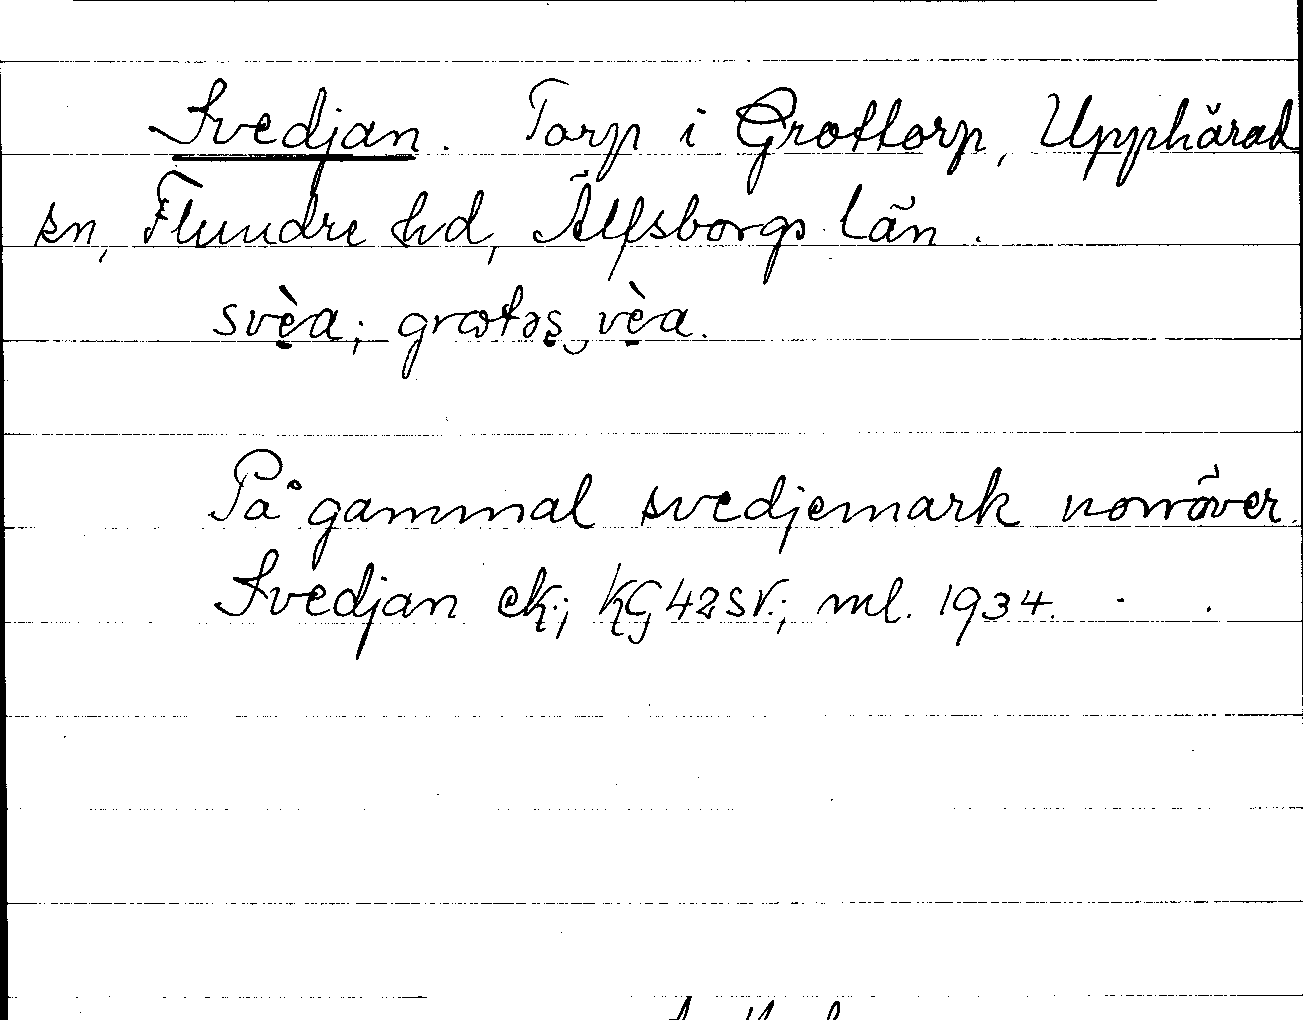 Svedjan. Torp i Grottorp, Upphärad
sn, Flundre hd, Älfsborgs län.
svèa; grotəs vèa.
På gammal svedjemark norröver.
Svedjan ek; KG 42 SV.; ml. 1934.